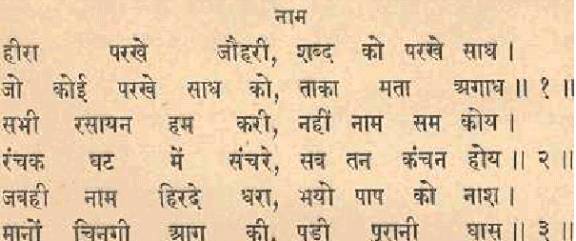 नाम
हीरा परखे जौहरी, शब्द को परखे साध ।
जो कोई परखे साध को, ताका मता अगाध ॥ १ ॥
सभी रसायन हम करी, नहीं नाम सम कोय ।
रंचक घट में संचरे, सब तन कंचन होय ॥ २ ॥
जबही नाम हिरदे धरा, भयो पाप को नाश ।
मानों चिनगी आग की, पडी पुरानी घास ॥ ३ ॥